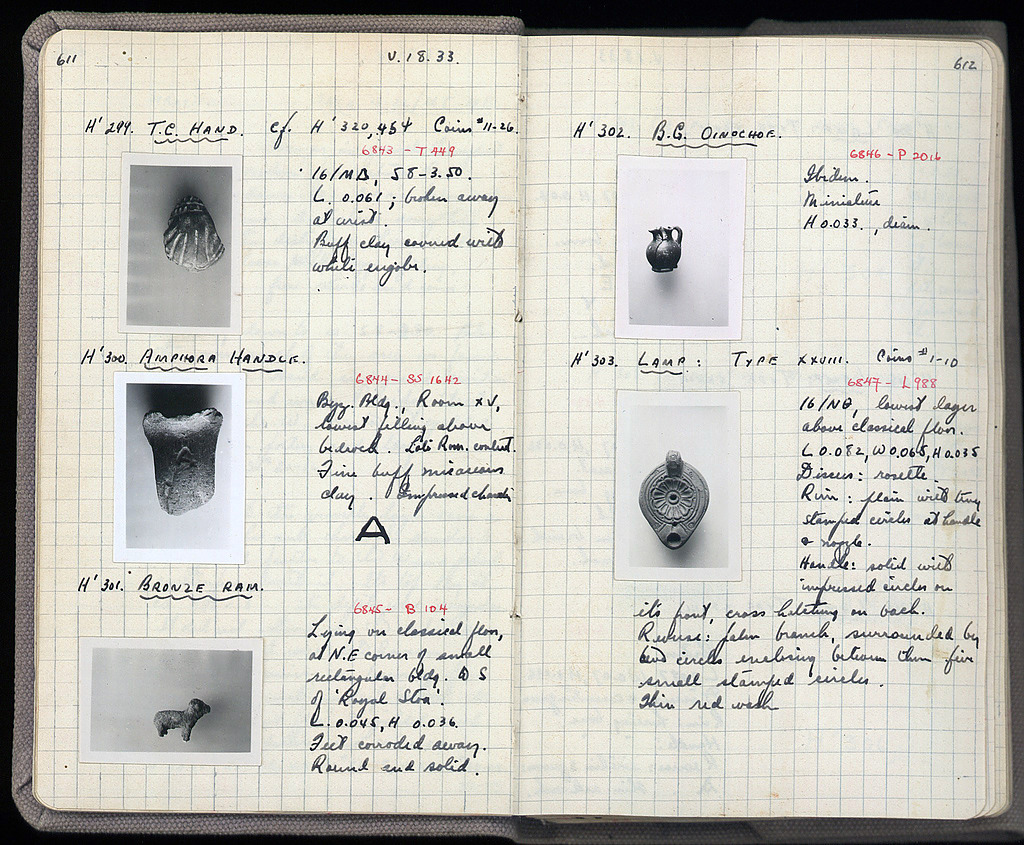 611
V.18.33.
H' 299. T.C. HAND. cf. H' 320, 454 Coins #11-26.
6843 - T 449
16/MΔ, 58-3.50.
L. 0.061; broken away
at wrist.
Buff clay covered with
white engobe.
H' 300. AMPHORA HANDLE.
6844 - SS 1642
Byz. Bldg., Room XV,
lowest filling above
bedrock. Late Rom. context.
Fine buff micaceous
clay. Impressed
A
H' 301. BRONZE RAM.
6845 - B 104
Lying on classical floor,
at N.E corner of small
rectangular bldg. S
of 'Royal Stoa'.
L. 0.045, H 0.036.
Feet corroded away.
Round and solid.
612
H' 302. B.G. OINOCHOE.
6846 - P 2016
Ibidem.
Miniature
H 0.033., diam.
H' 303. LAMP: TYPE XXVIII. Coins #1-10
6847 - L 988
16/NΘ, lowest layer
above classical floor.
L 0.082, W 0.065, H 0.035
Discus: rosette.
Rim: plain with tiny
stamped circles at handle
& nozzle.
Handle: solid with
impressed circles on
its front, cross hatching on back.
Reverse: palm branch, surrounded by
two circles enclosing between them five
small stamped circles.
Thin red wash